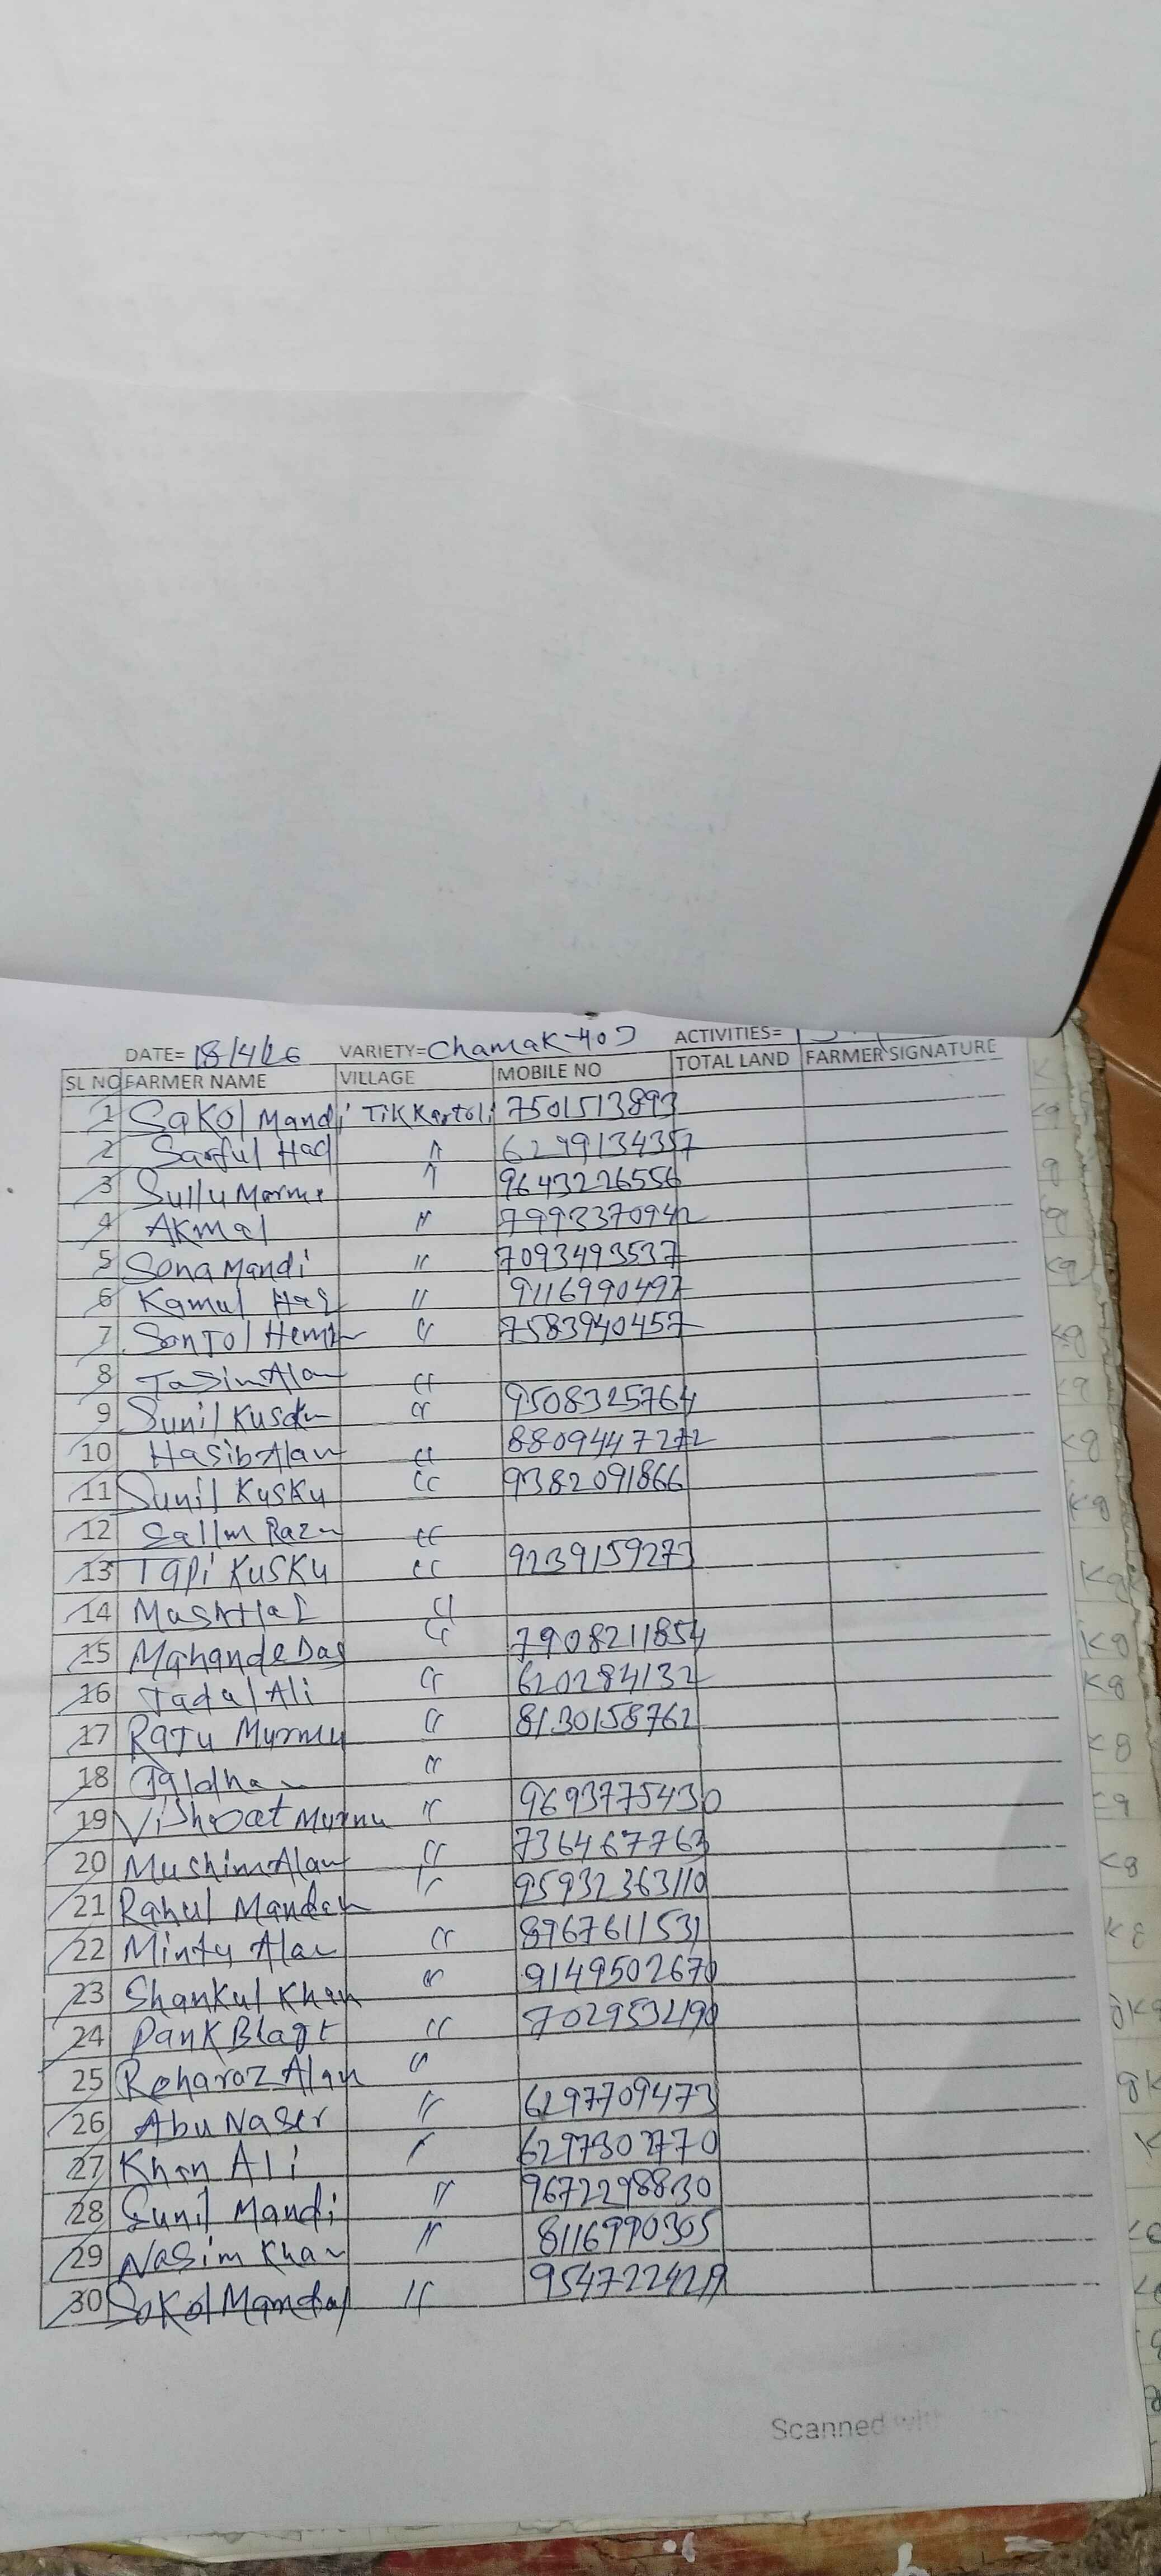 DATE= 18/4/26 VARIETY= Chamak-403 ACTIVITIES=
SL NO FARMER NAME VILLAGE MOBILE NO TOTAL LAND FARMER SIGNATURE
1 Sakol Mandi TikKartoli 7501513893
2 Sarful Haq 〃 6299134357
3 Sullu Marme 〃 9643226556
4 AKmal 〃 7993370942
5 Sona Mandi 〃 7093493537
6 Kamul Haq 〃 9116990497
7 Sontol Hemr 〃 7583940457
8 Tasim Alam 〃
9 Sunil Kusku 〃 9508325764
10 Hasib Alam 〃 8809447272
11 Sunil Kusku 〃 9382091866
12 Sallm Raza 〃
13 Tapi Kusku 〃 9239159273
14 〃
15 Mahande Das 〃 7908211854
16 Jadal Ali 〃 620284132
17 Raju Murmu 〃 8130158762
18 〃
19 Murmu 〃 9693775430
20 Mushim Alam 〃 736467763
21 Rahul Mandal 〃 95932363110
22 Minty Alam 〃 8967611531
23 Shankul Khan 〃 9149502670
24 Pank Blagt 〃 7029532190
25 Reharaz Alam 〃
26 Abu Naser 〃 6297709473
27 Khan Ali 〃 6297302770
28 Sunil Mandi 〃 9672298830
29 Nasim Khan 〃 8116990305
30 Sokol Mandal 〃
Scanned with